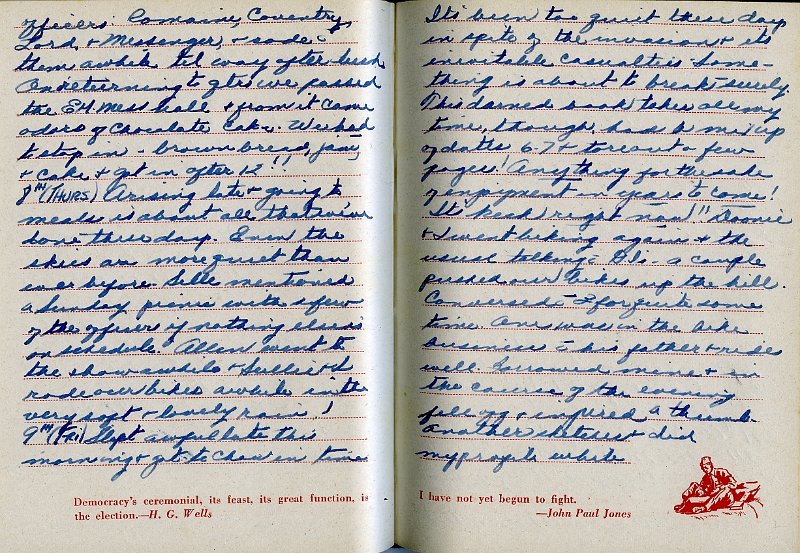 officers. Lomaine, Coventry,
Lord, + Messenger, + rode
them awhile til way after lunch
On returning to qtrs we passed
the EM mess hall + from it came
odors of chocolate cake. Worked
to stop in - brown bread, jam,
+ cake + got in after 12!!
8th (Thurs) Arising late + going to
meals is about all that we've
done these days. Even the
skies are more quiet than
ever before. mentioned
a Sunday picnic with a few
of the officers if nothing else is
on schedule. Allen went to
the show awhile + + I
rode our bikes awhile in the
very soft + lovely rain!
9th (Fri) Slept awful late this
morning + got to chow in time
Democracy's ceremonial, its feast, its great function, is
the election.—H. G. Wells
It's been too quiet these days
in spite of the invasion + its
inevitable casualties. Some-
thing is about to break surely.
This darned book takes all my
time, though, had to me up
of dates 6-7 + tore out a few
pages! Anything for the sake
of enjoyment in years to come!
It's right now!!
+ I went biking again + the
usual talking - GI's - a couple
passed our bikes up the hill.
Conversed for quite some
time. One was in the bike
business his father + rode
well. Borrowed mine + in
the course of the evening
fell off + injured a thumb.
did
my while
I have not yet begun to fight.
—John Paul Jones